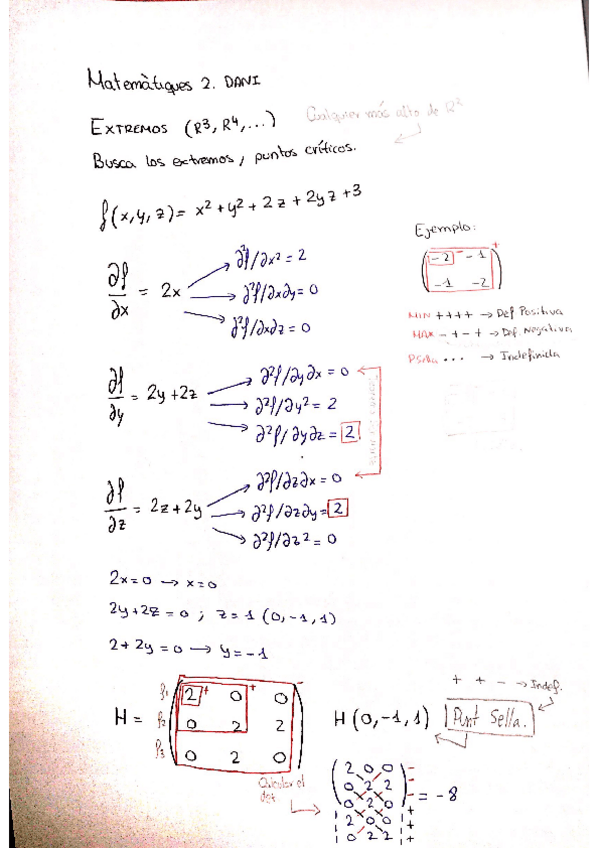 Matemàtiques 2. DANI
EXTREMOS (R³, R⁴,...) Cualquier más alto de R²
Busca los extremos, puntos críticos.
f(x,y,z) = x² + y² + 2z + 2yz + 3
Ejemplo:
-2 - -1 +
-1 -2
MIN ++++ → Def Positiva
MAX - + - + → Def. Negativa
PSella ... → Indefinida
∂f/∂x = 2x
∂²f/∂x² = 2
∂²f/∂x∂y = 0
∂²f/∂x∂z = 0
∂f/∂y = 2y + 2z
∂²f/∂y∂x = 0
∂²f/∂y² = 2
∂²f/∂y∂z = 2
∂f/∂z = 2z + 2y
∂²f/∂z∂x = 0
∂²f/∂z∂y = 2
∂²f/∂z² = 0
2x = 0 → x = 0
2y + 2z = 0 ; z = 1 (0, -1, 1)
2 + 2y = 0 → y = -1
+ + - → Indef.
H =
f₁ 2 + 0 + 0 -
f₂ 0 2 2
f₃ 0 2 0
H (0, -1, 1) Punt Sella.
Calcular el
det
2 0 0 -
0 2 2 -
0 2 0 - = -8
2 0 0 +
0 2 2 +